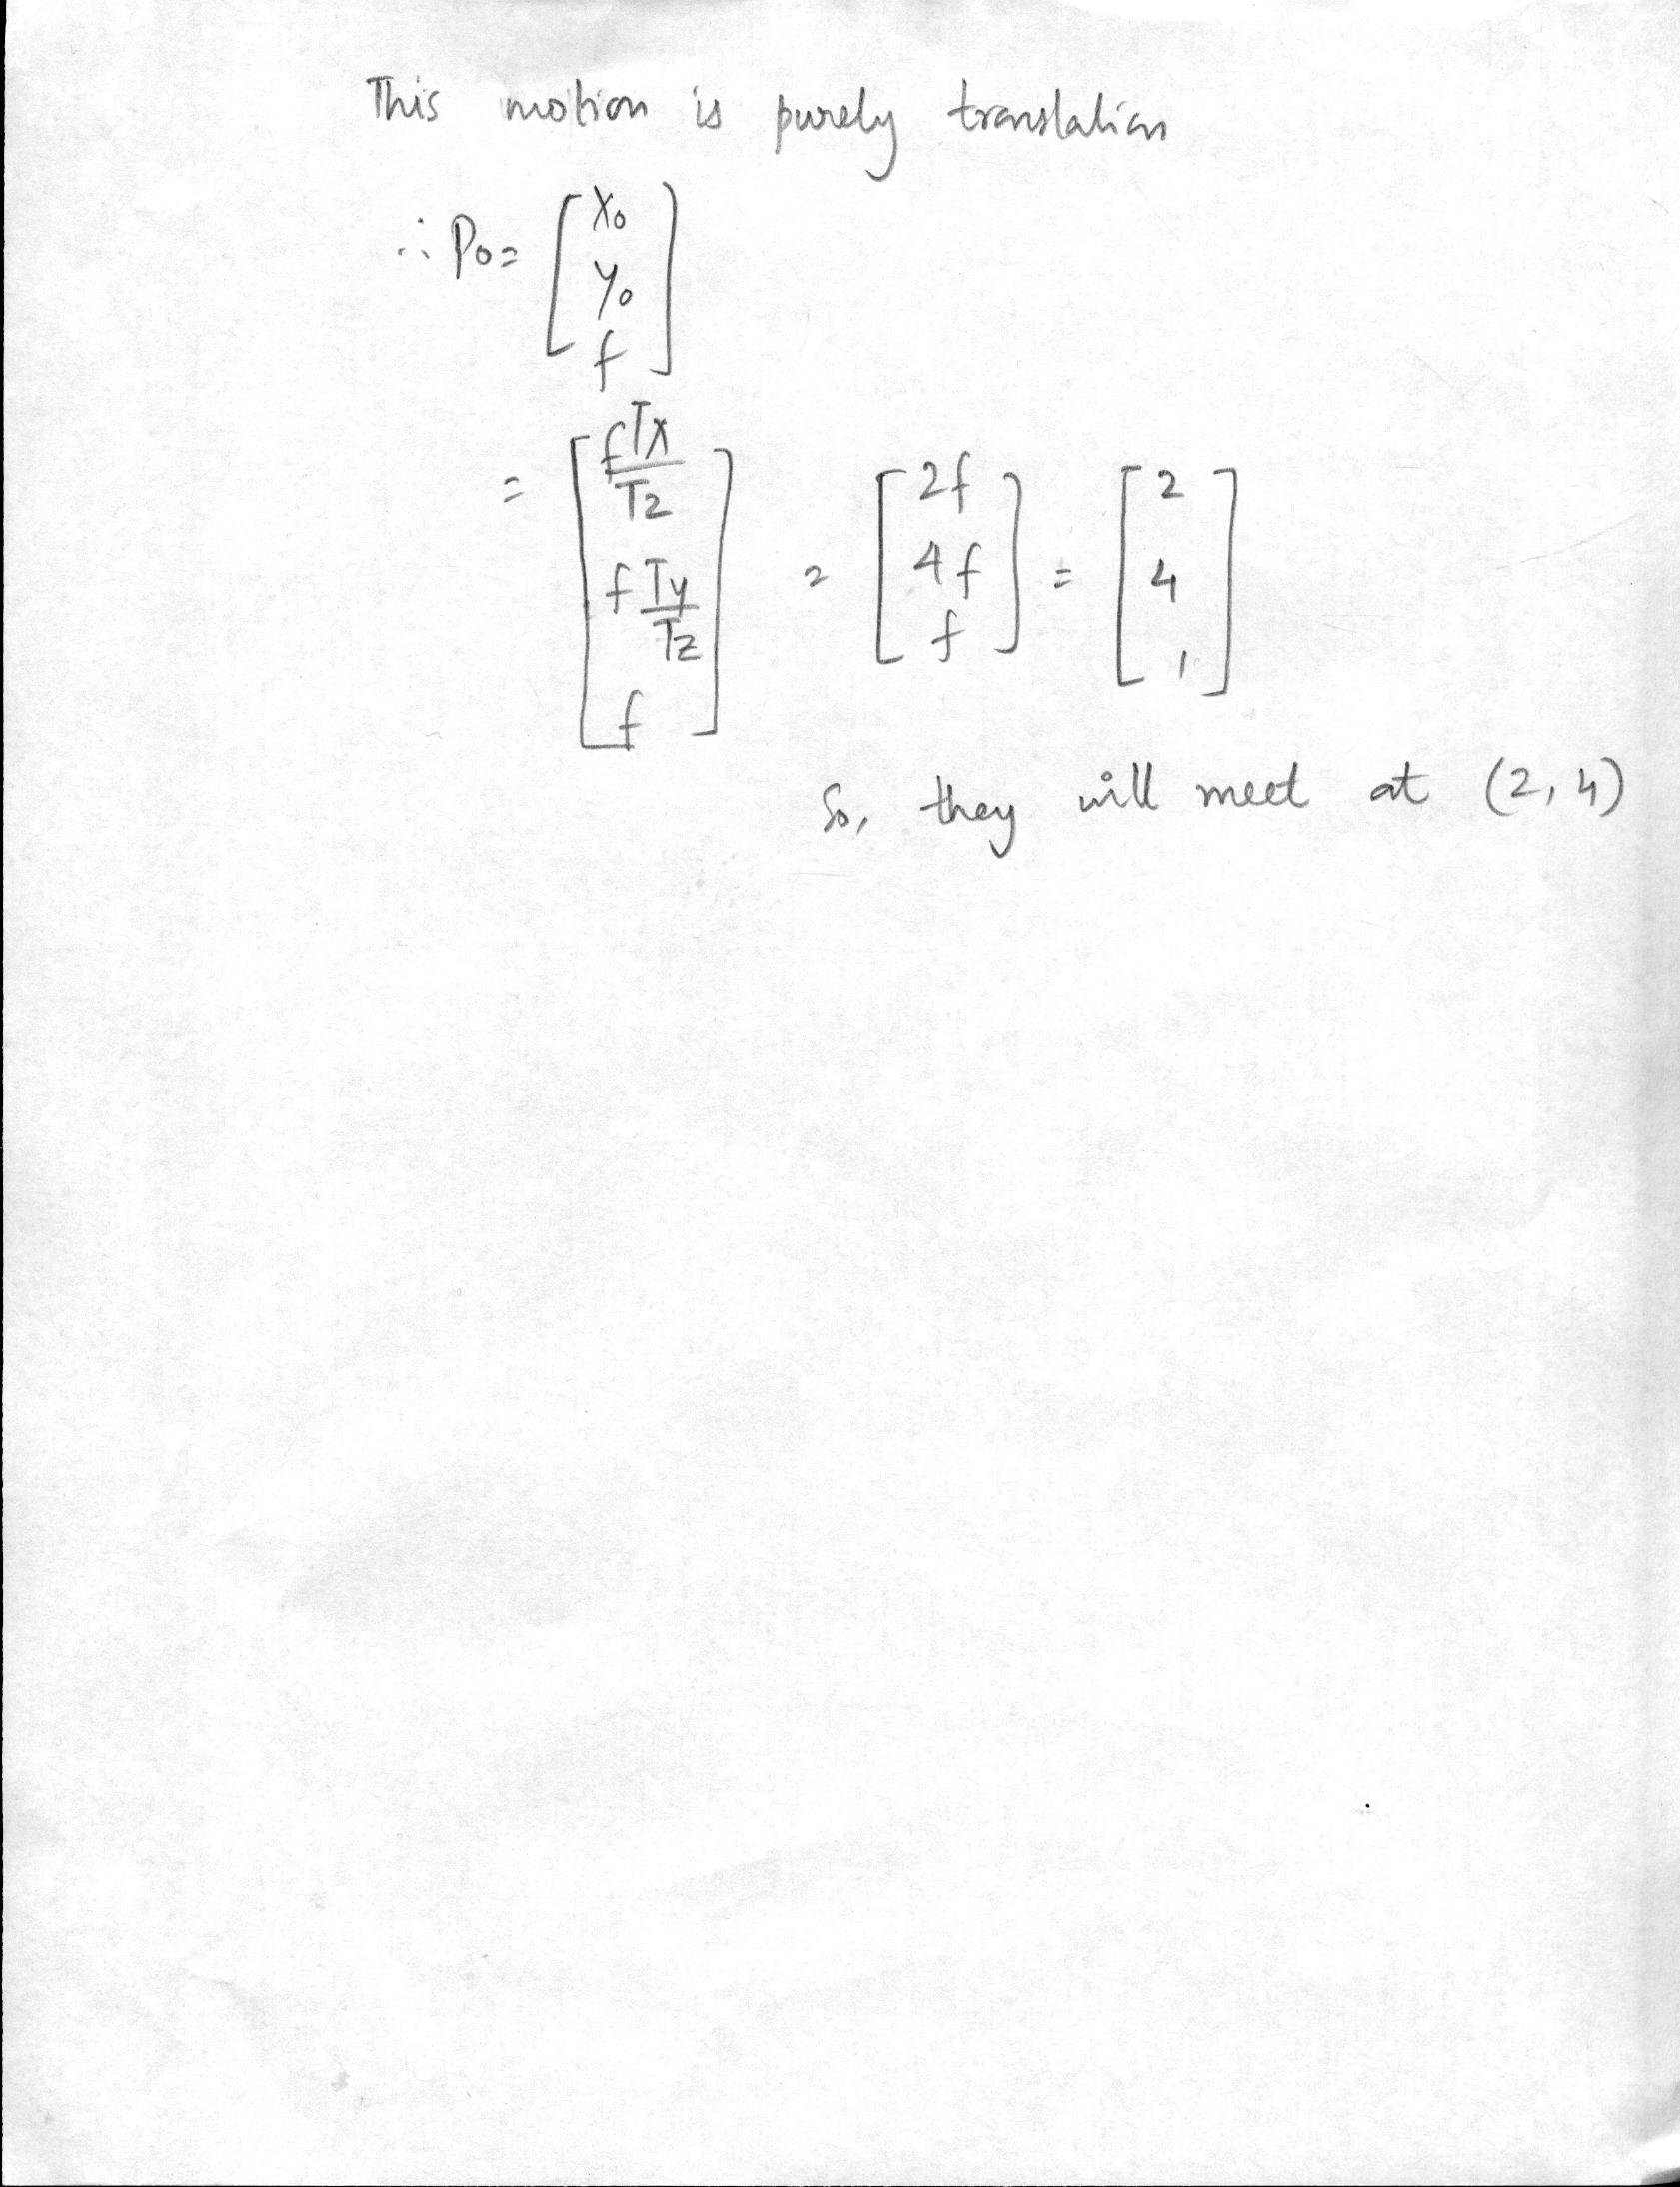 This motion is purely translation
∴ P0 = [ x0
y0
f ]
= [ f Tx / Tz
f Ty / Tz
f ] = [ 2f
4f
f ] = [ 2
4
1 ]
So, they will meet at (2, 4)